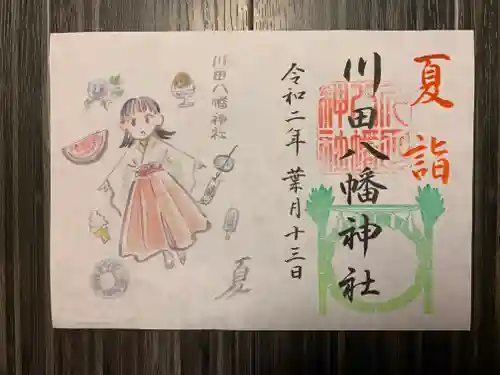 夏詣
川田八幡神社
川田八幡神社
令和二年 葉月十三日
川田八幡神社
夏